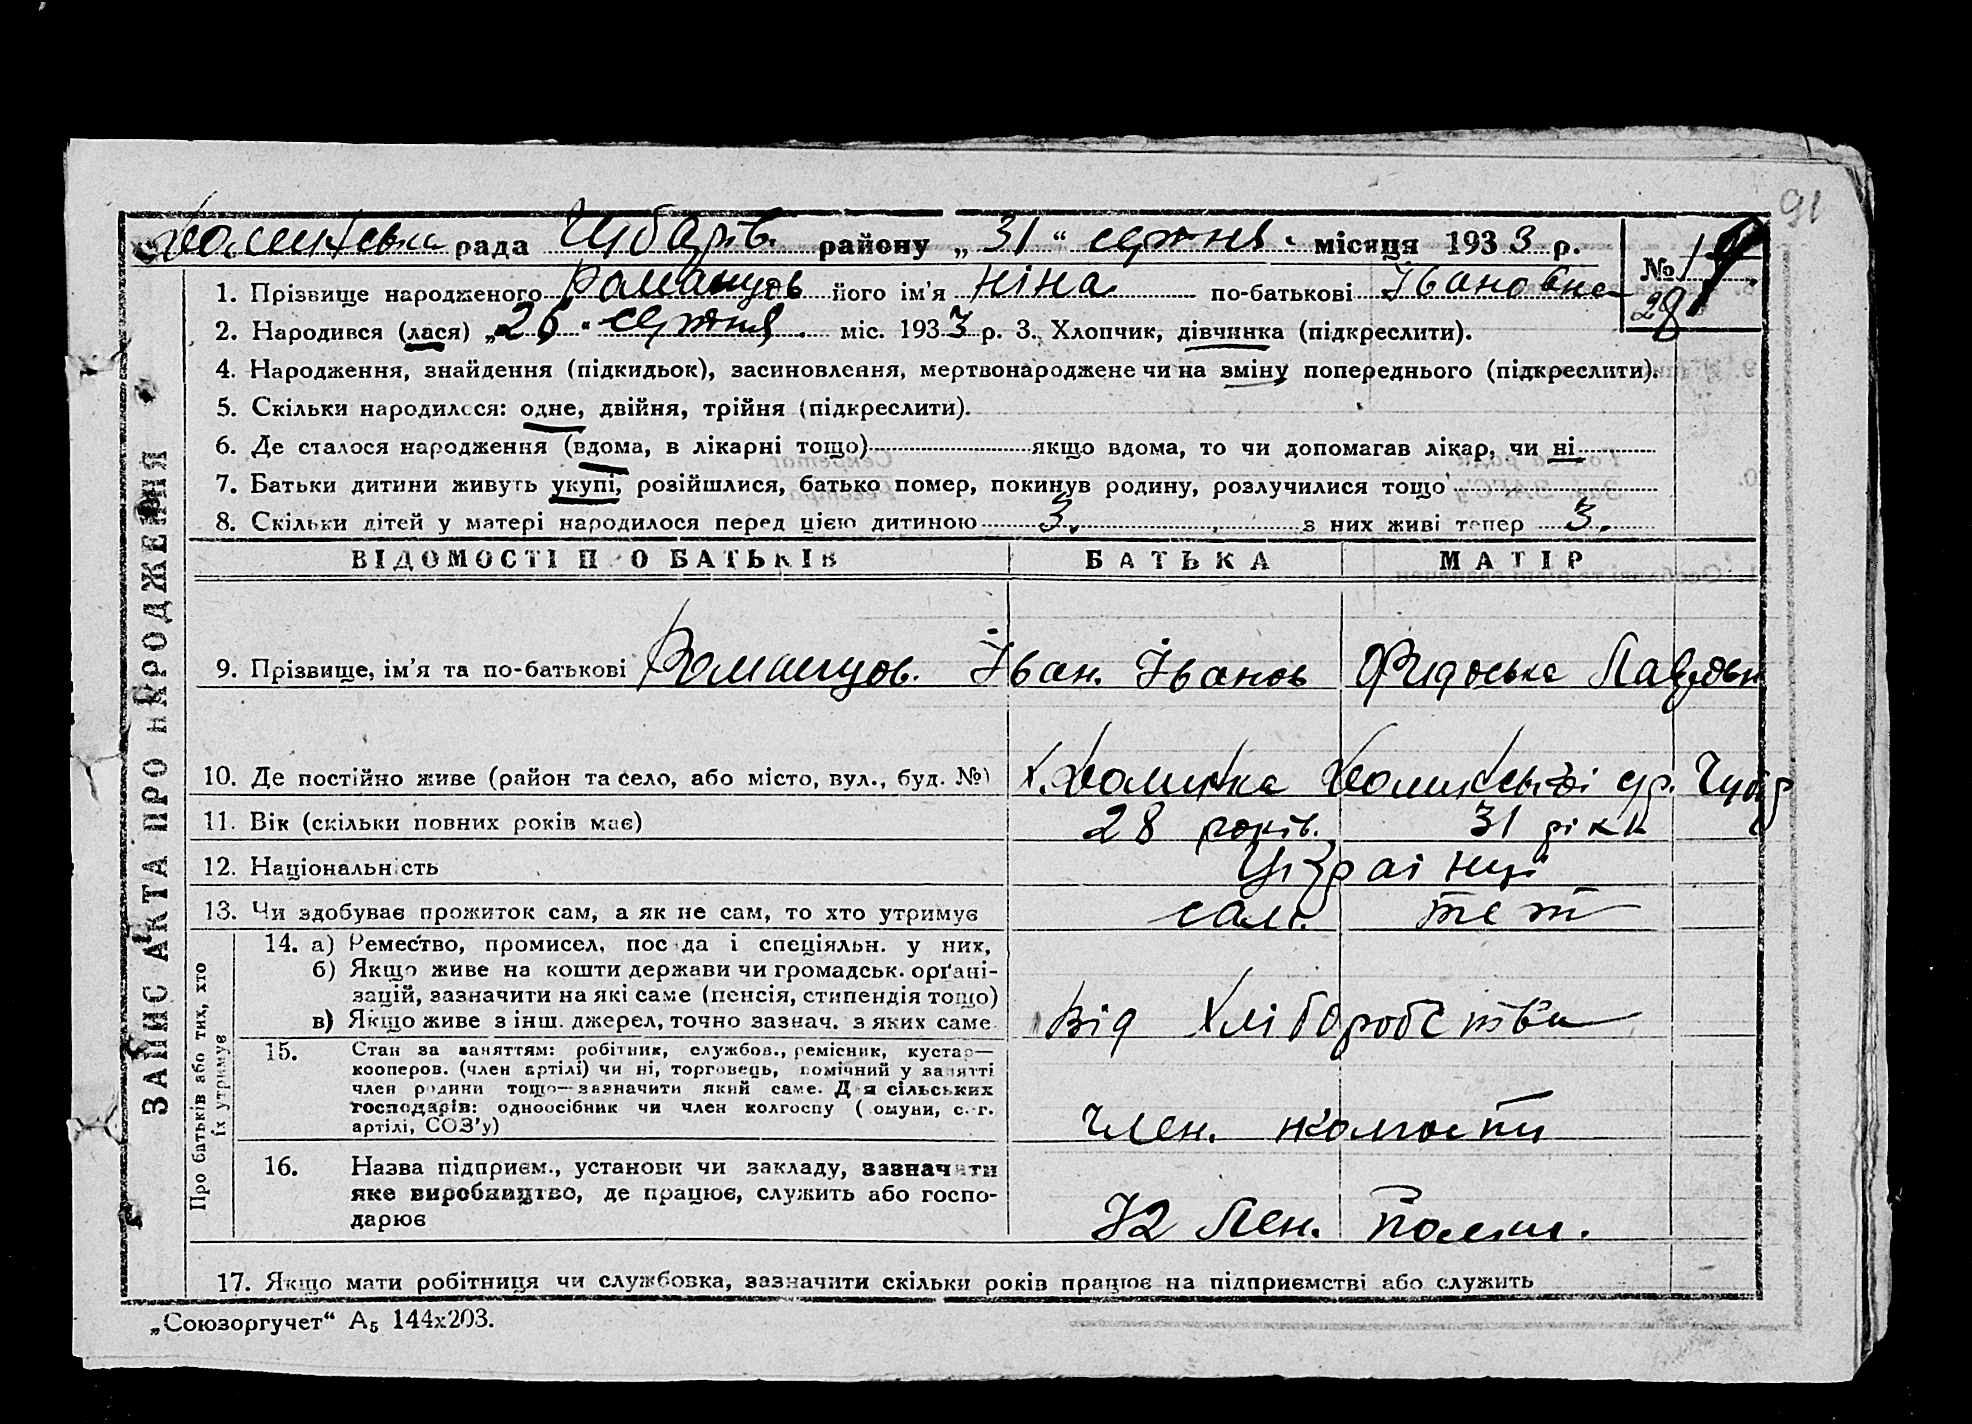 91
Холминська рада Чубарів. району „31“ серпня місяця 1933 р.
№ 19
28
1. Прізвище народженого Ромашов його ім'я Ніна по-батькові Івановна
2. Народився (лася) „26“ серпня міс. 1933 р. 3. Хлопчик, дівчинка (підкреслити).
4. Народження, знайдення (підкидьок), засиновлення, мертвонароджене чи на зміну попереднього (підкреслити).
5. Скільки народилося: одне, двійня, трійня (підкреслити).
6. Де сталося народження (вдома, в лікарні тощо) якщо вдома, то чи допомагав лікар, чи ні
7. Батьки дитини живуть укупі, розійшлися, батько помер, покинув родину, розлучилися тощо
8. Скільки дітей у матері народилося перед цією дитиною 3. з них живі тепер 3.
ВІДОМОСТІ ПРО БАТЬКІВ БАТЬКА МАТІР
9. Прізвище, ім'я та по-батькові Ромашов. Іван. Іванов Федоська
10. Де постійно живе (район та село, або місто, вул., буд. №)
11. Вік (скільки повних років має) 28 років. 31 рік
12. Національність Українці
13. Чи здобуває прожиток сам, а як не сам, то хто утримує сам. теж
14. а) Ремество, промисел, посада і спеціяльн. у них,
б) Якщо живе на кошти держави чи громадськ. орґані-
зацій, зазначити на які саме (пенсія, стипендія тощо)
в) Якщо живе з інш. джерел, точно зазнач. з яких саме від хліборобства
15. Стан за заняттям: робітник, службов., ремісник, кустар—
кооперов. (член артілі) чи ні, торговець, помічний у занятті
член родини тощо—зазначити який саме. Для сільських
господарів: одноосібник чи член колгоспу (комуни, с.-г.
артілі, СОЗ'у) член. колгоспу
16. Назва підприєм., установи чи закладу, зазначити
яке виробництво, де працює, служить або госпо-
дарює Лен.
17. Якщо мати робітниця чи службовка, зазначити скільки років працює на підприємстві або служить
ЗАПИС АКТА ПРО НАРОДЖЕННЯ
Про батьків або тих, хто
їх утримує
„Союзоргучет“ А5 144х203.